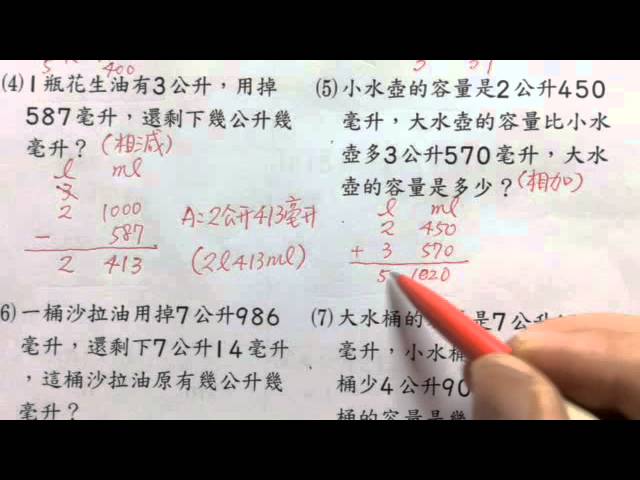 400
(4)1瓶花生油有3公升，用掉
587毫升，還剩下幾公升幾
毫升？(相減)
l ml
3
2 1000
－ 587
2 413
A=2公升413毫升
(2l413ml)
(5)小水壺的容量是2公升450
毫升，大水壺的容量比小水
壺多3公升570毫升，大水
壺的容量是多少？(相加)
l ml
2 450
+ 3 570
5 1020
6)一桶沙拉油用掉7公升986
毫升，還剩下7公升14毫升
，這桶沙拉油原有幾公升幾
毫升？
(7)大水桶的容量是7公升
毫升，小水桶
桶少4公升90
桶的容量是幾